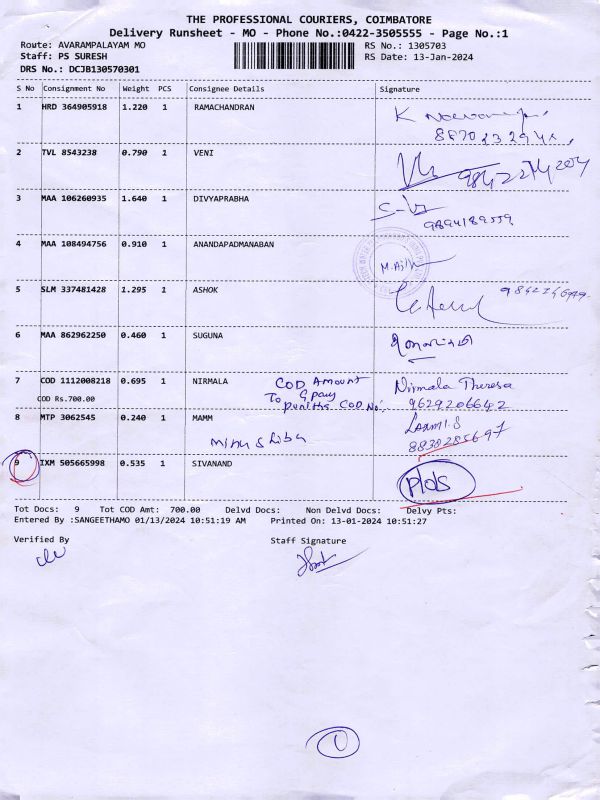 THE PROFESSIONAL COURIERS, COIMBATORE
Delivery Runsheet - MO - Phone No.:0422-3505555 - Page No.:1
Route: AVARAMPALAYAM MO
RS No.: 1305703
Staff: PS SURESH
RS Date: 13-Jan-2024
DRS No.: DCJB130570301
S No Consignment No Weight PCS Consignee Details Signature
1 HRD 364905918 1.220 1 RAMACHANDRAN
2 TVL 8543238 0.790 1 VENI
9842274204
3 MAA 106260935 1.640 1 DIVYAPRABHA
9894189559
4 MAA 108494756 0.910 1 ANANDAPADMANABAN
5 SLM 337481428 1.295 1 ASHOK
6 MAA 862962250 0.460 1 SUGUNA
7 COD 1112008218 0.695 1 NIRMALA COD Amount Nirmala Theresa
COD Rs.700.00 To Gpay 9629206642
COD No:
8 MTP 3062545 0.240 1 MAMM Laxmi.S
8838285697
9 IXM 505665998 0.535 1 SIVANAND
Tot Docs: 9 Tot COD Amt: 700.00 Delvd Docs: Non Delvd Docs: Delvy Pts:
Entered By :SANGEETHAMO 01/13/2024 10:51:19 AM Printed On: 13-01-2024 10:51:27
Verified By Staff Signature